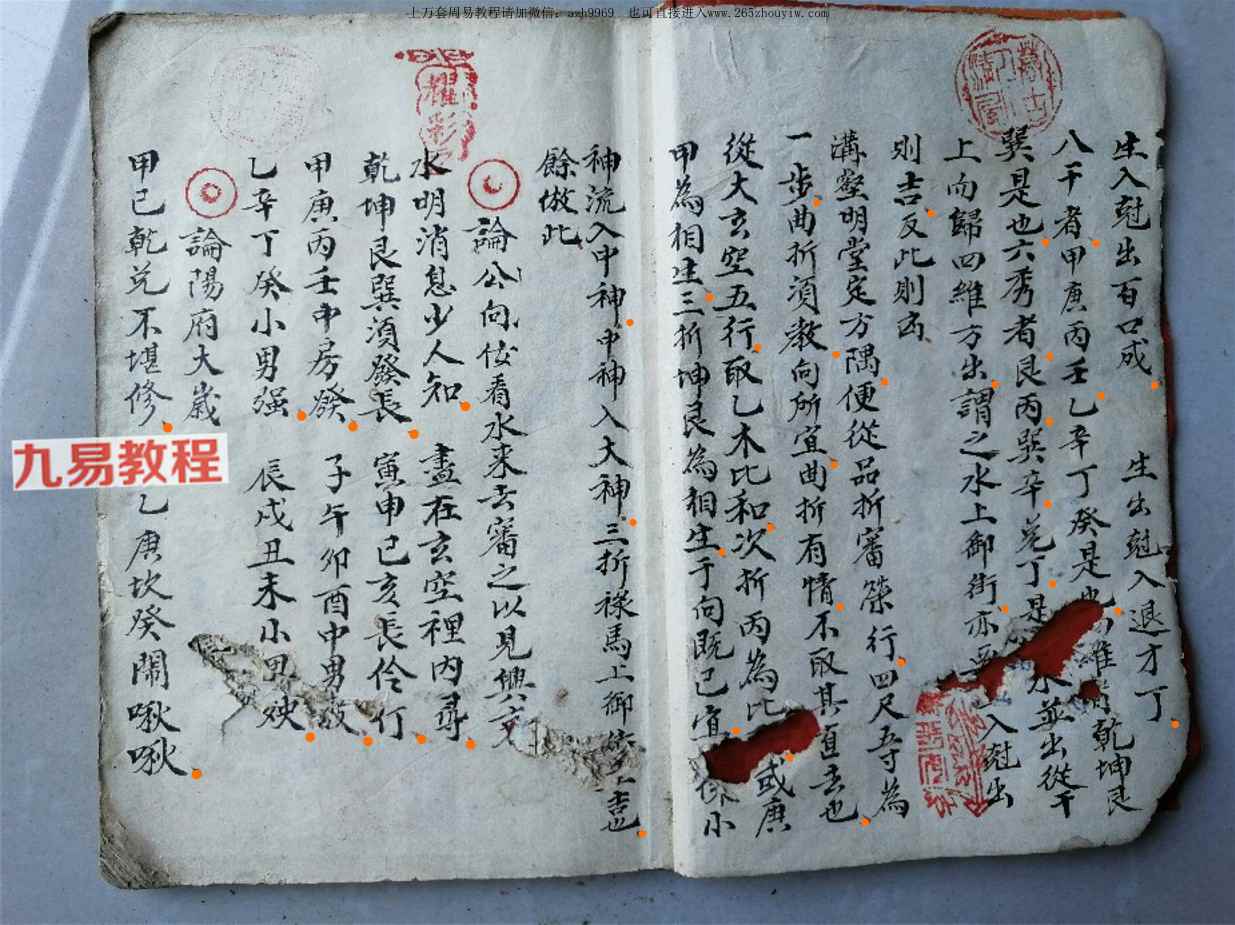 上万套周易教程请加微信：azh9969　也可直接进入www.265zhouyiw.com
生入尅出百口成　生出尅入退才丁
八干者甲庚丙壬乙辛丁癸是也四維者乾坤艮
巽是也六秀者艮丙巽辛兌丁是 水並出從干
上而歸四維方出謂之水上御街亦 入尅出
則吉反此則凶
溝壑明堂定方隅便從品折審 行四尺五寸為
一步曲折須教向所宜曲折有情不取其直去也
從大玄空五行取乙木比和次折丙為比 或庚
甲為相生三折坤艮為相生于向既已宜 小
神流入中神中神入大神三折祿馬上御街 吉也
餘倣此
論公向位看水來去審之以見興
水明消息少人知　盡在玄空裡內尋
乾坤艮巽須發長　寅申巳亥長伶仃
甲庚丙壬中房發　子午卯酉中男
乙辛丁癸小男强　辰戌丑未小 殃
論陽府大歲
甲己乾兌不堪修　乙庚坎癸鬧啾啾
耀彩
九易教程